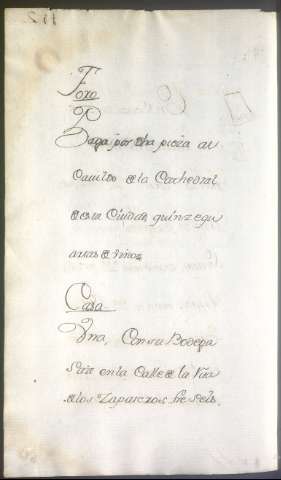 Foro
Paga por dha pieza al
Cavildo de la Cathedral
de esta Ciudad, quinze qu
artas de vino
Casa
Vna, Con su Bodega
Sita en la Calle de la Rua
de los Zapateros